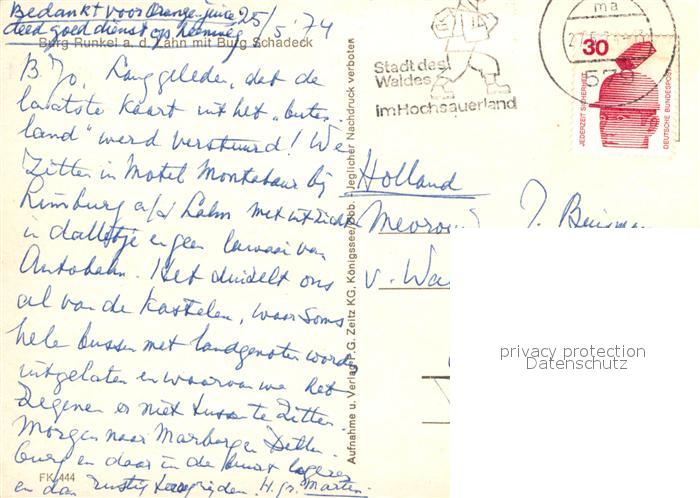 Bedankt voor Orange-juice 25/5 '74
deed goed dienst op heenweg
Burg Runkel a. d. Lahn mit Burg Schadeck
B. Jo, Lang geleden, dat de
laatste kaart uit het "buten-
land" werd verstuurd! We
Zitten in Motel Montabaur bij
Limburg a/d Lahn met uitzicht
in dalletje en geen lawaai van
Autobahn. Het duizelt ons
al van de Kastelen, waar soms
hele bussen met landgenoten worden
uitgeladen en waarvan we het
zegenen er niet tussen te zitten.
Morgen naar Marburg en Dillen-
burg en daar in de buurt logeren
en dan rustig terugrijden. H. gr. Marten
FK 444
Aufnahme u. Verlag P.G. Zeitz KG, Königssee/Obb. · Jeglicher Nachdruck verboten
Stadt des
Waldes
im Hochsauerland
ma
27.5.
578
30
JEDERZEIT SICHERHEIT
DEUTSCHE BUNDESPOST
Holland
Mevrouw J.
v. Wa
privacy protection
Datenschutz